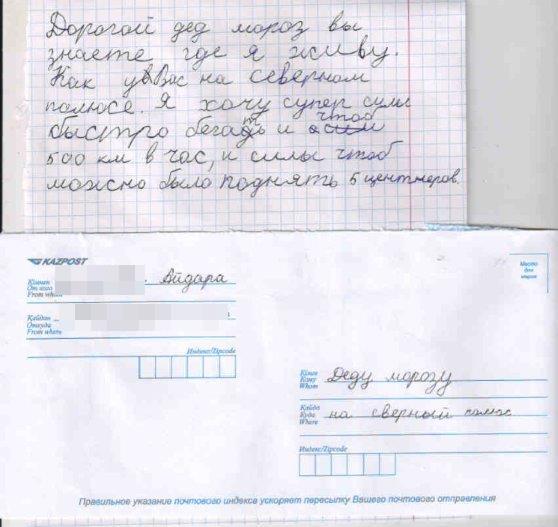 Дорогой дед мороз вы
знаете где я живу.
Как у Вас на северном
полюсе. Я хочу супер силы
быстро бегать и чтоб
500 км в час, и силы чтоб
можно было поднять 5 центнеров.
KAZPOST
Кімнен
От кого
From whom
Айдара
Қайдан
Откуда
From where
Индекс/Zipcode
Место
для
марки
Кімге
Кому
Whom
Деду морозу
Қайда
Куда
Where
на сверный полюс
Индекс/Zipcode
Правильное указание почтового индекса ускоряет пересылку Вашего почтового отправления